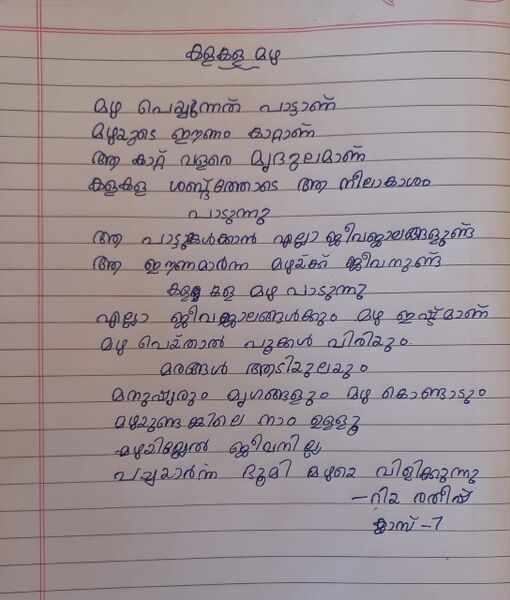 കളകള മഴ
മഴ പെയ്യുന്നത് പാട്ടാണ്
മഴയുടെ ഈണം കാറ്റാണ്
ആ കാറ്റ് വളരെ മൃദുലമാണ്
കളകള ശബ്ദത്തോടെ ആ നീലാകാശം
പാടുന്നു
ആ പാട്ടുകേൾക്കാൻ എല്ലാ ജീവജാലങ്ങളുണ്ട്
ആ ഈണമാർന്ന മഴയ്ക്ക് ജീവനുണ്ട്
കള കള മഴ പാടുന്നു
എല്ലാ ജീവജാലങ്ങൾക്കും മഴ ഇഷ്ടമാണ്
മഴ പെയ്താൽ പൂക്കൾ വിരിയും
മരങ്ങൾ ആടിയുലയും
മനുഷ്യരും മൃഗങ്ങളും മഴ കൊണ്ടാടും
മഴയുണ്ടങ്കിലെ നാം ഉള്ളൂ
മഴയില്ലേൽ ജീവനില്ല
പച്ചയാർന്ന ഭൂമി മഴയെ വിളിക്കുന്നു
- റിയ രതീഷ്
ക്ലാസ് - 7